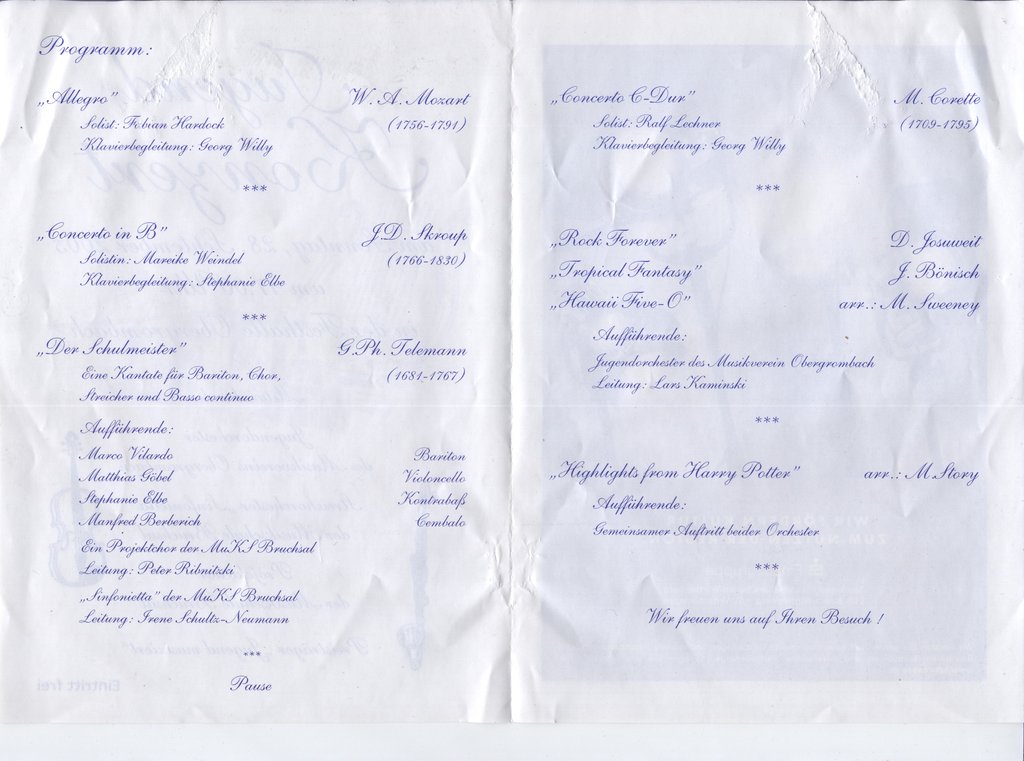 Programm:
„Allegro" W. A. Mozart
Solist: Fabian Hardock (1756-1791)
Klavierbegleitung: Georg Willy
***
„Concerto in B" J.D. Skroup
Solistin: Mareike Weindel (1766-1830)
Klavierbegleitung: Stephanie Elbe
***
„Der Schulmeister" G.Ph. Telemann
Eine Kantate für Bariton, Chor, (1681-1767)
Streicher und Basso continuo
Aufführende:
Marco Vilardo Bariton
Matthias Göbel Violoncello
Stephanie Elbe Kontrabaß
Manfred Berberich Cembalo
Ein Projektchor der MuKS Bruchsal
Leitung: Peter Ribnitzki
„Sinfonietta" der MuKS Bruchsal
Leitung: Irene Schultz-Neumann
***
Pause
„Concerto C-Dur" M. Corette
Solist: Ralf Lechner (1709-1795)
Klavierbegleitung: Georg Willy
***
„Rock Forever" D. Josuweit
„Tropical Fantasy" J. Bönisch
„Hawaii Five-O" arr.: M. Sweeney
Aufführende:
Jugendorchester des Musikverein Obergrombach
Leitung: Lars Kaminski
***
„Highlights from Harry Potter" arr.: M. Story
Aufführende:
Gemeinsamer Auftritt beider Orchester
***
Wir freuen uns auf Ihren Besuch !
Jugend
Konzert
Eintritt frei